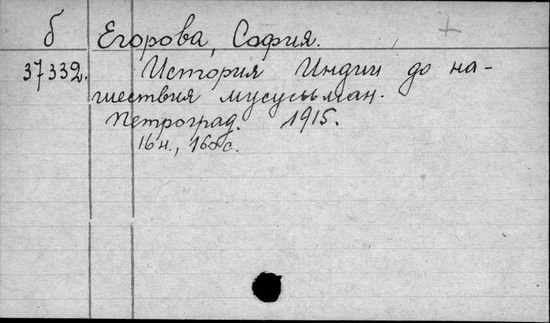 б Егорова, София. +
37332. История Индии до на-
шествия мусульман.
Петроград. 1915.
16н., 160 с.